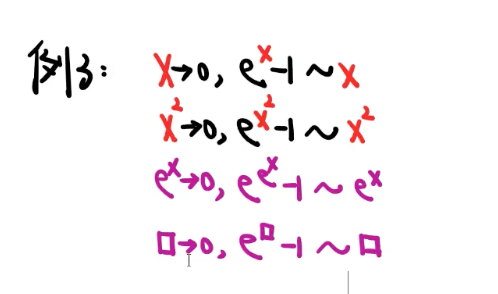 例子：
x→0, e^x-1~x
x²→0, e^x²-1~x²
e^x→0, e^e^x-1~e^x
□→0, e^□-1~□